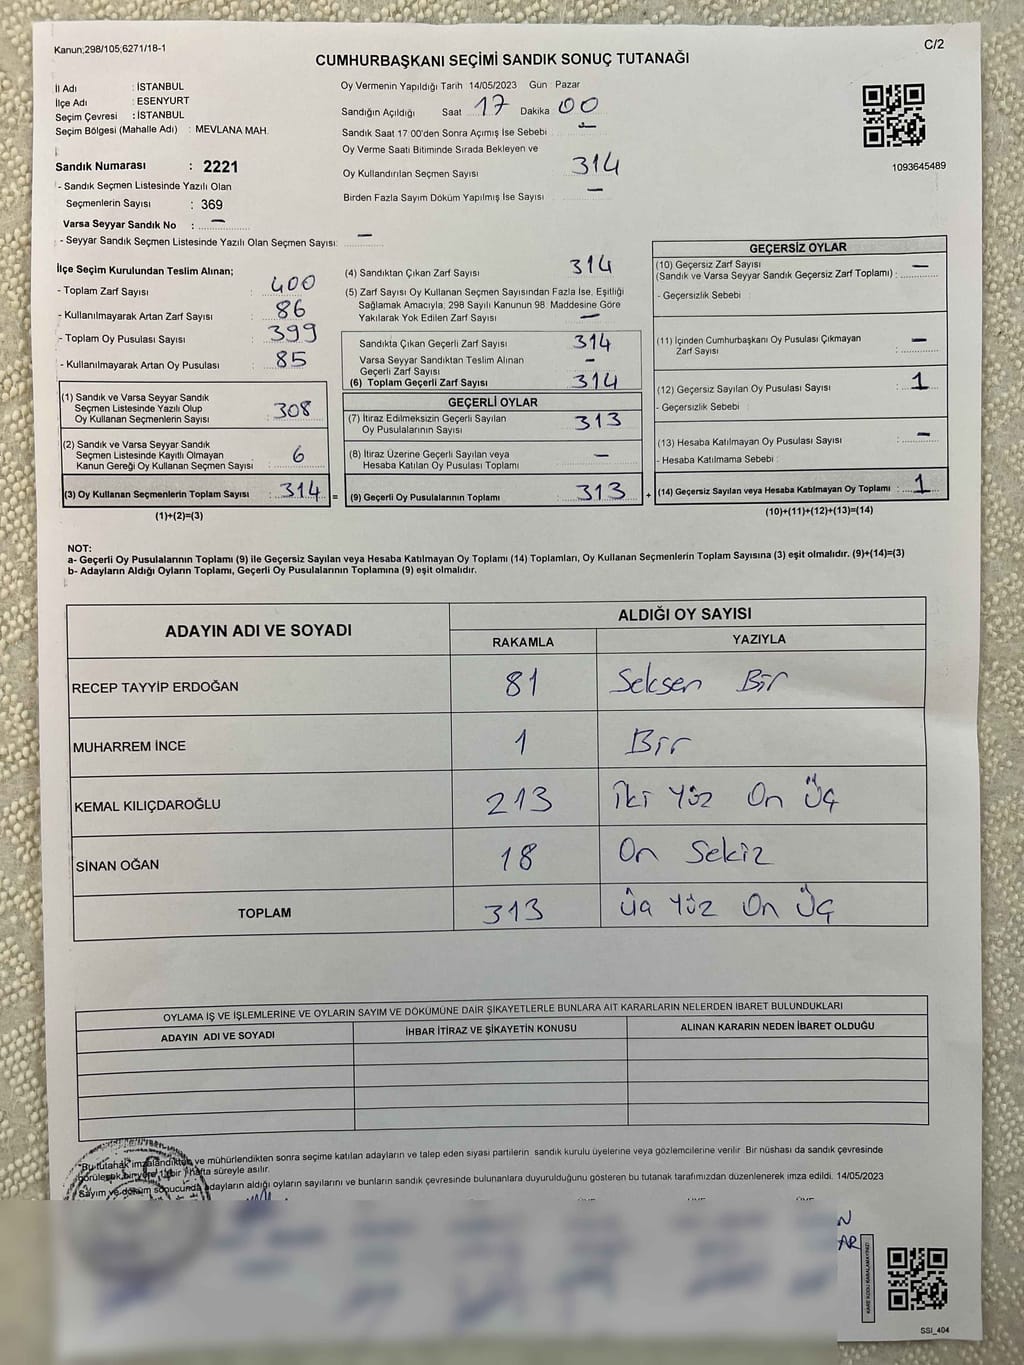 Kanun;298/105;6271/18-1
C/2
CUMHURBAŞKANI SEÇİMİ SANDIK SONUÇ TUTANAĞI
İl Adı : İSTANBUL
İlçe Adı : ESENYURT
Seçim Çevresi : İSTANBUL
Seçim Bölgesi (Mahalle Adı) : MEVLANA MAH.
Sandık Numarası : 2221
- Sandık Seçmen Listesinde Yazılı Olan
Seçmenlerin Sayısı : 369
Varsa Seyyar Sandık No : —
- Seyyar Sandık Seçmen Listesinde Yazılı Olan Seçmen Sayısı: —
Oy Vermenin Yapıldığı Tarih 14/05/2023 Gün Pazar
Sandığın Açıldığı Saat 17 Dakika 00
Sandık Saat 17 00'den Sonra Açımış İse Sebebi —
Oy Verme Saati Bitiminde Sırada Bekleyen ve
Oy Kullandırılan Seçmen Sayısı 314
Birden Fazla Sayım Döküm Yapılmış İse Sayısı —
1093645489
İlçe Seçim Kurulundan Teslim Alınan;
- Toplam Zarf Sayısı : 400
- Kullanılmayarak Artan Zarf Sayısı : 86
- Toplam Oy Pusulası Sayısı : 399
- Kullanılmayarak Artan Oy Pusulası : 85
(1) Sandık ve Varsa Seyyar Sandık
Seçmen Listesinde Yazılı Olup
Oy Kullanan Seçmenlerin Sayısı : 308
(2) Sandık ve Varsa Seyyar Sandık
Seçmen Listesinde Kayıtlı Olmayan
Kanun Gereği Oy Kullanan Seçmen Sayısı : 6
(3) Oy Kullanan Seçmenlerin Toplam Sayısı : 314 =
(1)+(2)=(3)
(4) Sandıktan Çıkan Zarf Sayısı 314
(5) Zarf Sayısı Oy Kullanan Seçmen Sayısından Fazla İse, Eşitliği
Sağlamak Amacıyla; 298 Sayılı Kanunun 98. Maddesine Göre
Yakılarak Yok Edilen Zarf Sayısı —
Sandıkta Çıkan Geçerli Zarf Sayısı 314
Varsa Seyyar Sandıktan Teslim Alınan
Geçerli Zarf Sayısı —
(6) Toplam Geçerli Zarf Sayısı 314
GEÇERLİ OYLAR
(7) İtiraz Edilmeksizin Geçerli Sayılan
Oy Pusulalarının Sayısı 313
(8) İtiraz Üzerine Geçerli Sayılan veya
Hesaba Katılan Oy Pusulası Toplamı —
(9) Geçerli Oy Pusulalarının Toplamı 313 +
GEÇERSİZ OYLAR
(10) Geçersiz Zarf Sayısı
(Sandık ve Varsa Seyyar Sandık Geçersiz Zarf Toplamı) : —
- Geçersizlik Sebebi :
(11) İçinden Cumhurbaşkanı Oy Pusulası Çıkmayan
Zarf Sayısı : —
(12) Geçersiz Sayılan Oy Pusulası Sayısı : 1
- Geçersizlik Sebebi :
(13) Hesaba Katılmayan Oy Pusulası Sayısı : —
- Hesaba Katılmama Sebebi :
(14) Geçersiz Sayılan veya Hesaba Katılmayan Oy Toplamı : 1
(10)+(11)+(12)+(13)=(14)
NOT:
a- Geçerli Oy Pusulalarının Toplamı (9) ile Geçersiz Sayılan veya Hesaba Katılmayan Oy Toplamı (14) Toplamları, Oy Kullanan Seçmenlerin Toplam Sayısına (3) eşit olmalıdır. (9)+(14)=(3)
b- Adayların Aldığı Oyların Toplamı, Geçerli Oy Pusulalarının Toplamına (9) eşit olmalıdır.
ADAYIN ADI VE SOYADI
ALDIĞI OY SAYISI
RAKAMLA YAZIYLA
RECEP TAYYİP ERDOĞAN 81 Seksen Bir
MUHARREM İNCE 1 Bir
KEMAL KILIÇDAROĞLU 213 İki Yüz On Üç
SİNAN OĞAN 18 On Sekiz
TOPLAM 313 Yüz On Üç
OYLAMA İŞ VE İŞLEMLERİNE VE OYLARIN SAYIM VE DÖKÜMÜNE DAİR ŞİKAYETLERLE BUNLARA AİT KARARLARIN NELERDEN İBARET BULUNDUKLARI
ADAYIN ADI VE SOYADI İHBAR İTİRAZ VE ŞİKAYETİN KONUSU ALINAN KARARIN NEDEN İBARET OLDUĞU
"Bu tutanak imzalandıktan ve mühürlendikten sonra seçime katılan adayların ve talep eden siyasi partilerin sandık kurulu üyelerine veya gözlemcilerine verilir. Bir nüshası da sandık çevresinde
görülecek bir yere 1 bir hafta süreyle asılır.
Sayım ve döküm sonucunda adayların aldığı oyların sayılarını ve bunların sandık çevresinde bulunanlara duyurulduğunu gösteren bu tutanak tarafımızdan düzenlenerek imza edildi. 14/05/2023
N
AR
KARE KODU KARALAMAYINIZ!
SSI_404